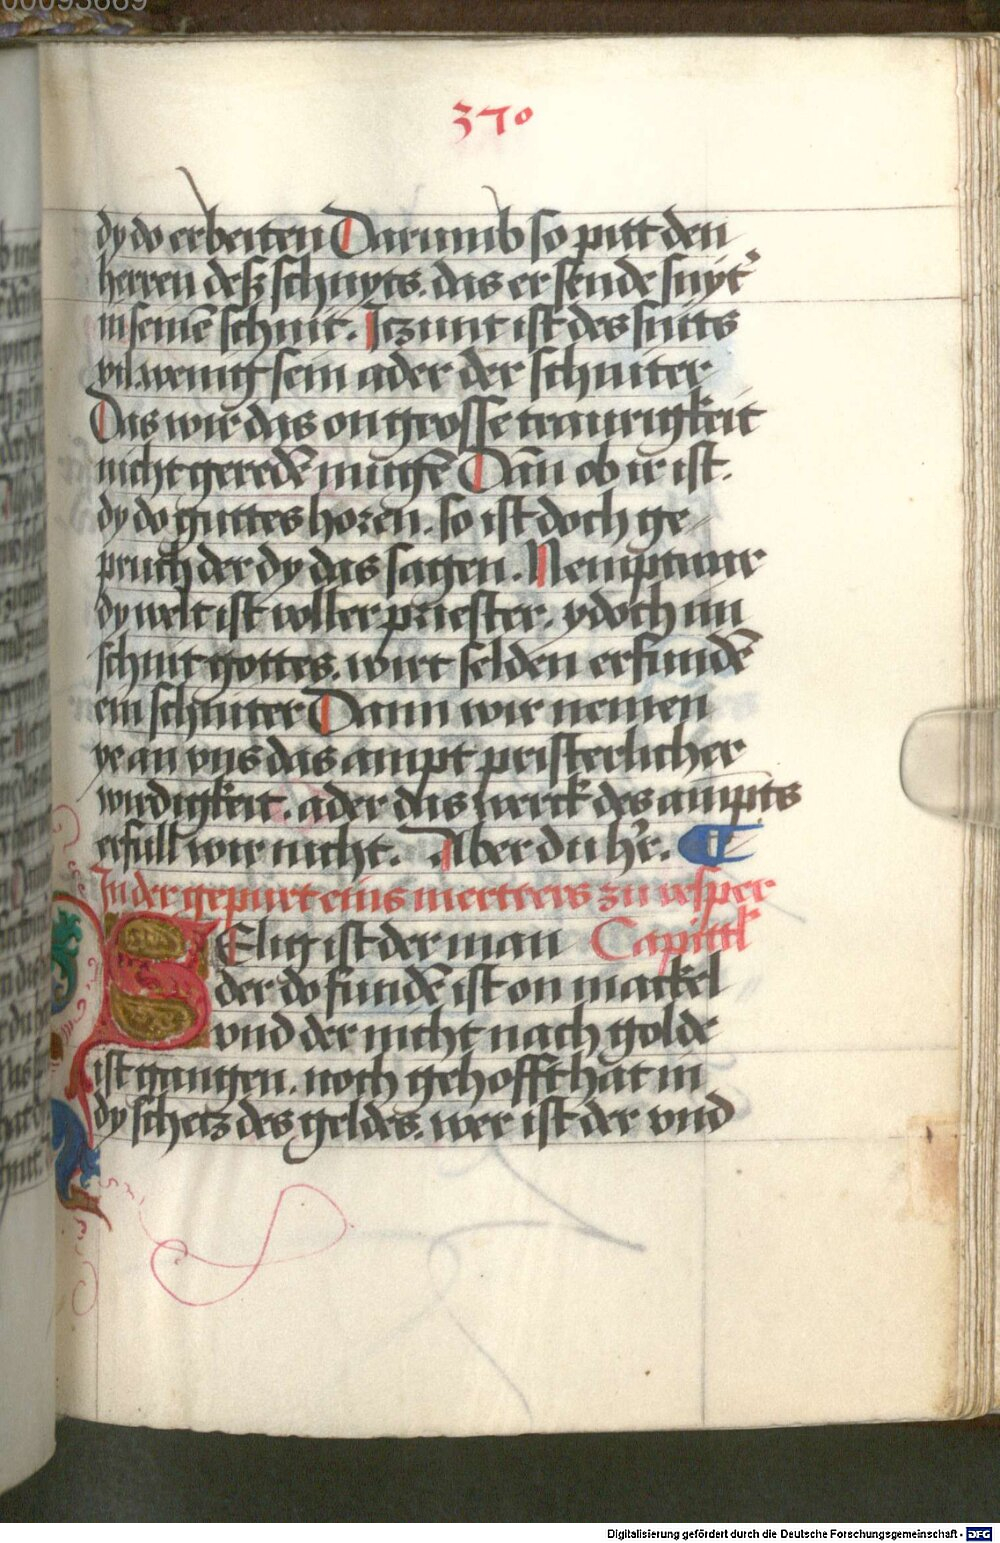 370
dy do erbeiten Darumb so pitt den
herren deß schnyts. das er sende snyt'
in seinē schnit. Iczunt ist des snits
vil. wenig sein ader der schniter
Das wir das on grosse traurigkeit
nicht geredē mugē Dān ob ir ist.
dy do guttes horen. so ist doch ge
pruch der dy das sagen. Nempt war
dy welt ist voller priester. ydoch im
schnit gottes. wirt selden erfundē
ein schniter Dann wir nemen
ye an vns das ampt pristerlicher
wirdigkeit. ader das werck des ampts
erfull wir nicht. Aber du h'r.
In der gepurt eins mertrers zu vesper
SElig ist der man Capittl
der do fundē ist on mackel
vnd der nicht nach golde
ist gangen. noch gehofft hat in
dy schetz des geldes. wer ist der vnd
Digitalisierung gefördert durch die Deutsche Forschungsgemeinschaft - DFG